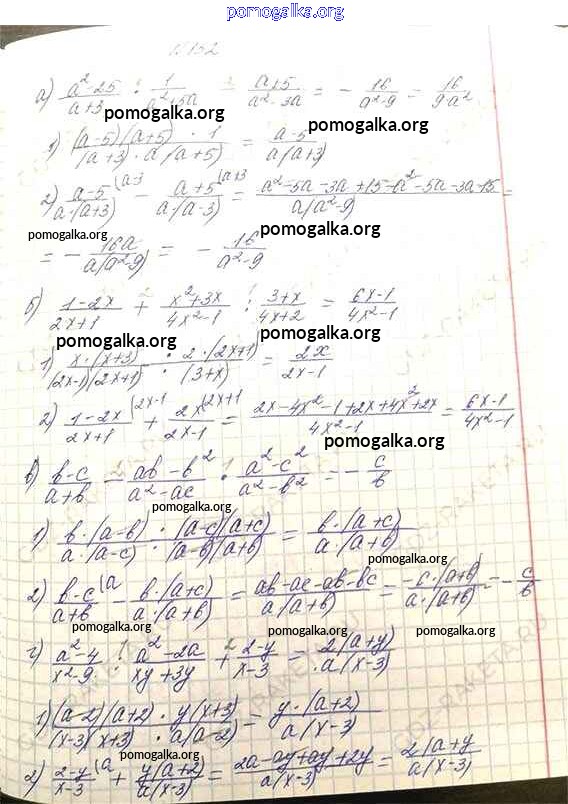 pomogalka.org
№ 152
а) a²-25/a+3 · 1/a²+5a - a+5/a²-3a = - 16/a²-9 = 16/9-a²
pomogalka.org pomogalka.org
1) (a-5)(a+5) · 1/(a+3) · a(a+5) = a-5/a(a+3)
2) a-5/a·(a+3) (a-3 - a+5/a·(a-3) (a+3 = a²-5a-3a+15-a²-5a-3a-15/a(a²-9) =
pomogalka.org pomogalka.org pomogalka.org
= - 16a/a(a²-9) = - 16/a²-9
pomogalka.org
б) 1-2x/2x+1 + x²+3x/4x²-1 : 3+x/4x+2 = 6x-1/4x²-1
pomogalka.org pomogalka.org
1) x·(x+3)/(2x-1)(2x+1) · 2·(2x+1)/(3+x) = 2x/2x-1
pomogalka.org
2) 1-2x/2x+1 (2x-1 + 2x/2x-1 (2x+1 = 2x-4x²-1+2x+4x²+2x/4x²-1 = 6x-1/4x²-1
pomogalka.org
в) b-c/a+b - ab-b²/a²-ac · a²-c²/a²-b² = - c/b
pomogalka.org
1) b·(a-b)/a·(a-c) · (a-c)(a+c)/(a-b)(a+b) = b·(a+c)/a(a+b)
pomogalka.org pomogalka.org
2) b-c/a+b (a - b·(a+c)/a·(a+b) = ab-ac-ab-bc/a(a+b) = -c·(a+b)/a·(a+b) = - c/b
pomogalka.org pomogalka.org pomogalka.org
г) a²-4/x²-9 : a²-2a/xy+3y + 2-y/x-3 = 2(a+y)/a(x-3)
pomogalka.org pomogalka.org
1) (a-2)(a+2)·y(x+3)/(x-3)(x+3)·a(a-2) = y·(a+2)/a(x-3)
pomogalka.org
2) 2-y/x-3 (a + y(a+2)/a(x-3) = 2a-ay+ay+2y/a(x-3) = 2(a+y/a(x-3)
pomogalka.org